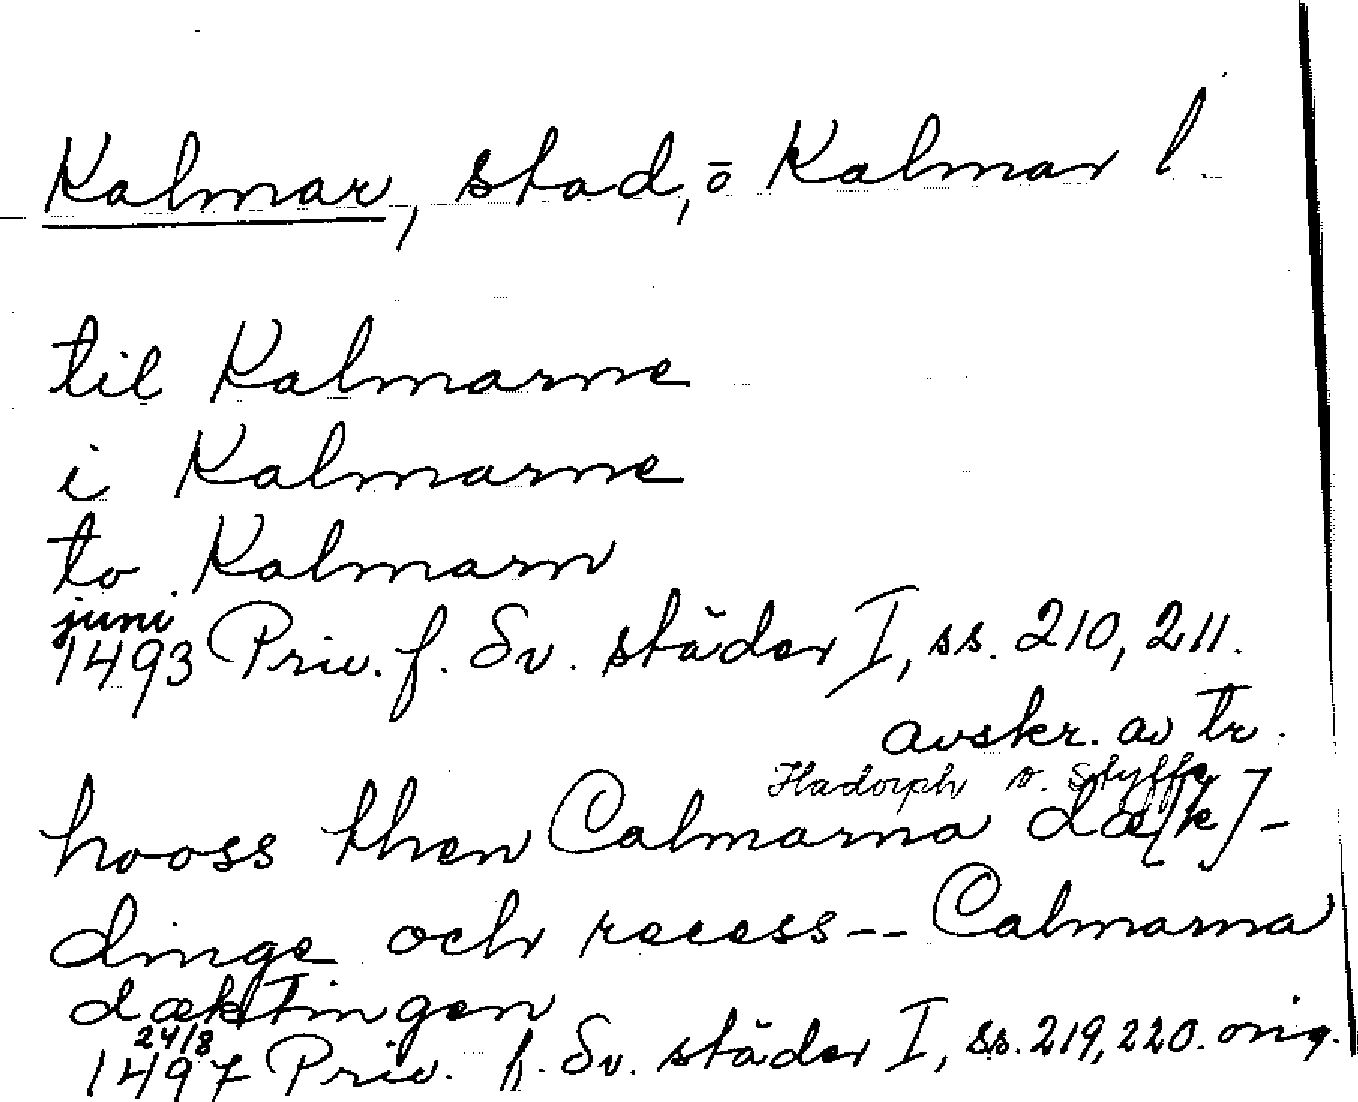 Kalmar, stad, ö Kalmar l.
til Kalmarne
i Kalmarne
to Kalmarn
juni
1493 Priv. f. Sv. städer I, ss. 210, 211.
avskr. av tr.
Hadorph o. Styffe
hooss then Calmarna dæ[k]-
dinge och recess -- Calmarna
dæktingen
24/8
1497 Priv. f. Sv. städer I, ss. 219, 220. orig.